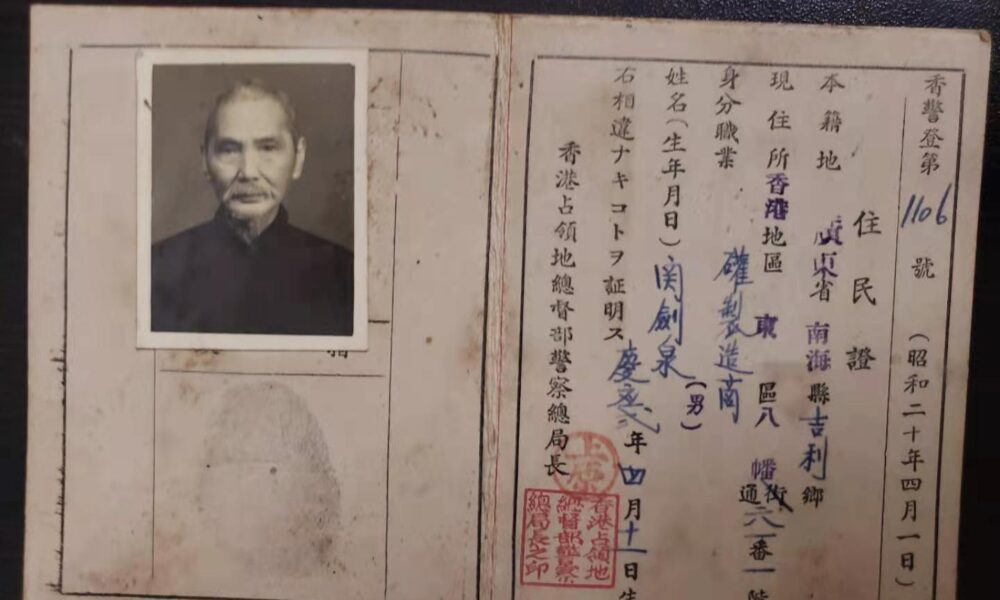 香警登第1106號（昭和二十年四月一日）
住民證
本籍地 廣東省南海縣吉利鄉
現住所香港地區東區八幡通街六一番一階
身分職業 礶製造商
姓名（生年月日）関劍泉（男）
慶應弍年四月十一日生
右相違ナキコトヲ証明ス
香港占領地總督部警察總局長
香港占領地
總督部警察
總局長之印